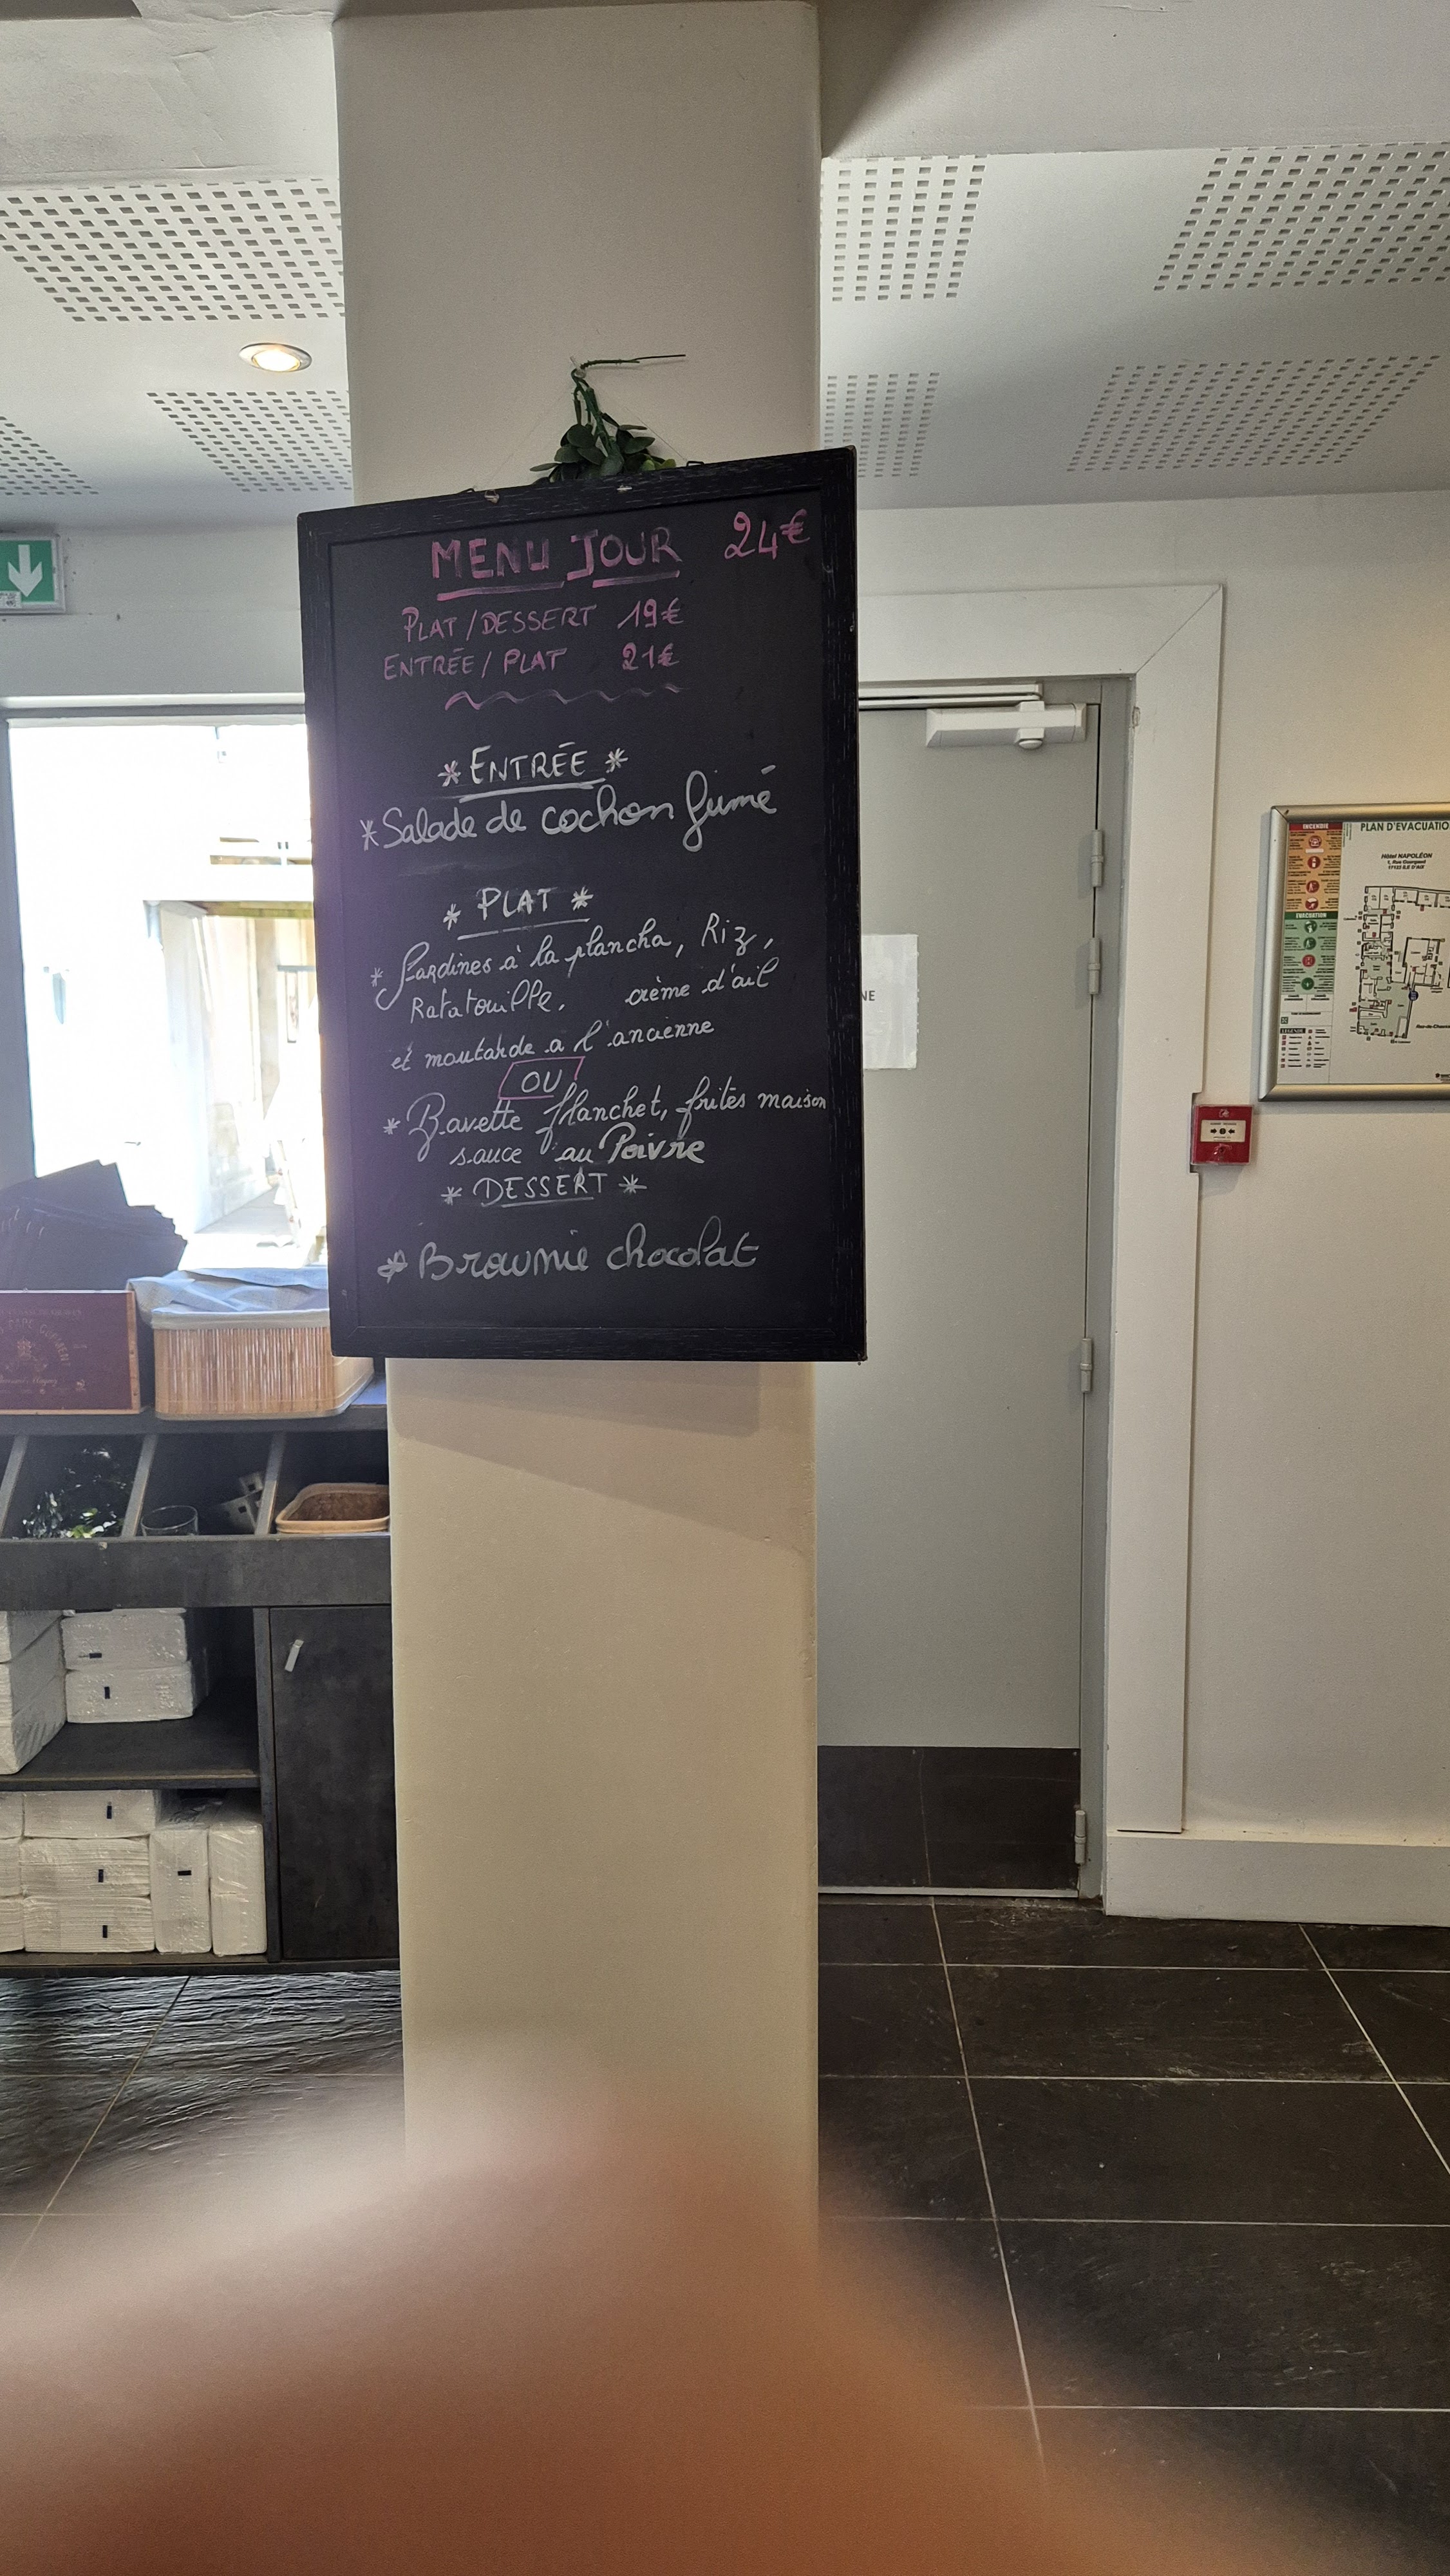 MENU JOUR 24€
PLAT/DESSERT 19€
ENTRÉE/PLAT 21€
* ENTRÉE *
* Salade de cochon fumé
* PLAT *
* Sardines à la plancha, Riz,
Ratatouille, crème d'ail
et moutarde a l'ancienne
OU
* Bavette flanchet, frites maison
sauce au Poivre
* DESSERT *
* Brownie chocolat
NE
INCENDIE
PLAN D'EVACUATIO
Hôtel NAPOLÉON
1, Rue Gourgaud
17123 ILE D'AIX
EVACUATION